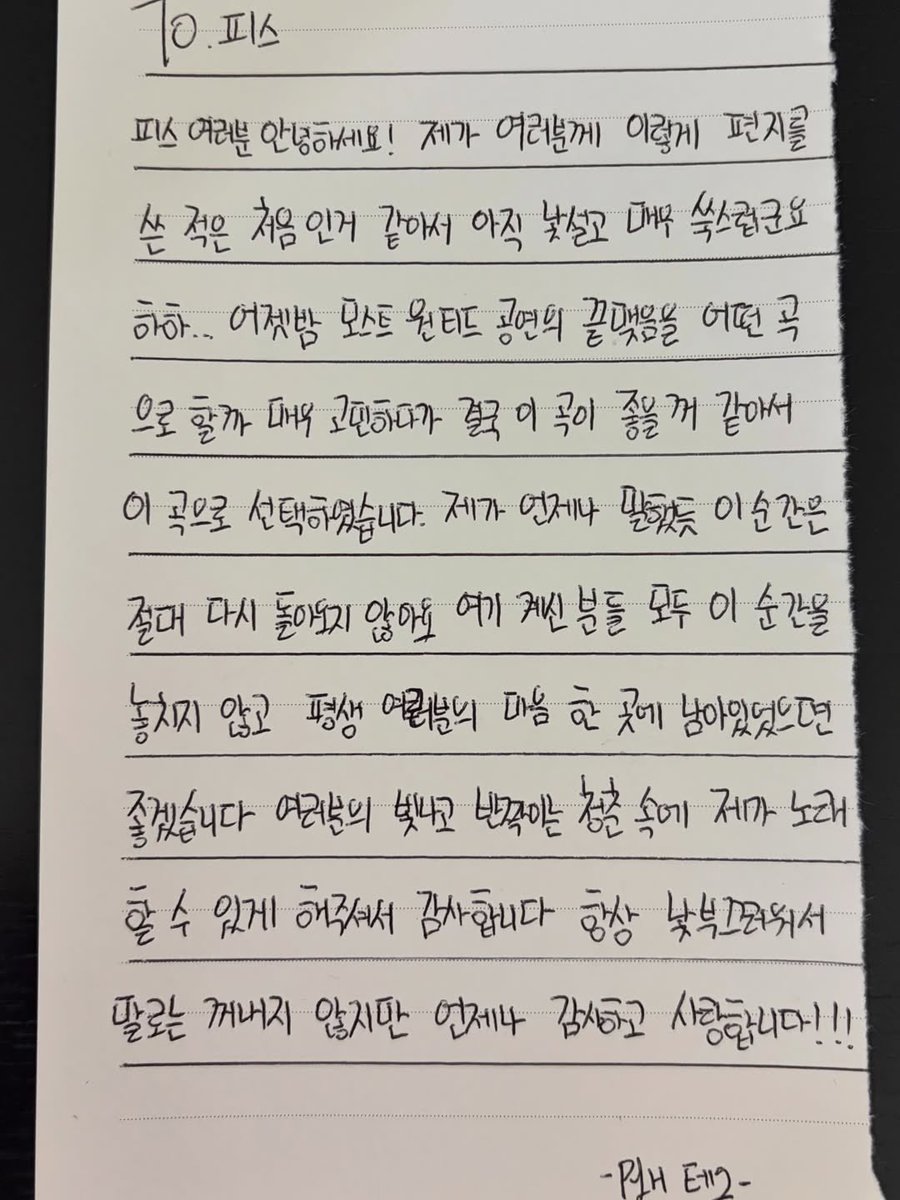 To. 피스
피스 여러분 안녕하세요! 제가 여러분께 이렇게 편지를
쓴 적은 처음인거 같아서 아직 낯설고 매우 쑥스럽군요
하하.. 어젯밤 모스트 원티드 공연의 끝맺음을 어떤 곡
으로 할까 매우 고민하다가 결국 이 곡이 좋을 꺼 같아서
이 곡으로 선택하였습니다. 제가 언제나 말했듯 이 순간은
절대 다시 돌아오지 않아요 여기 계신 분들 모두 이 순간을
놓치지 않고 평생 여러분의 마음 한 곳에 남아있었으면
좋겠습니다 여러분의 빛나고 반짝이는 청춘 속에 제가 노래
할 수 있게 해주셔서 감사합니다 항상 낯부끄러워서
말로는 꺼내지 않지만 언제나 감사하고 사랑합니다!!!